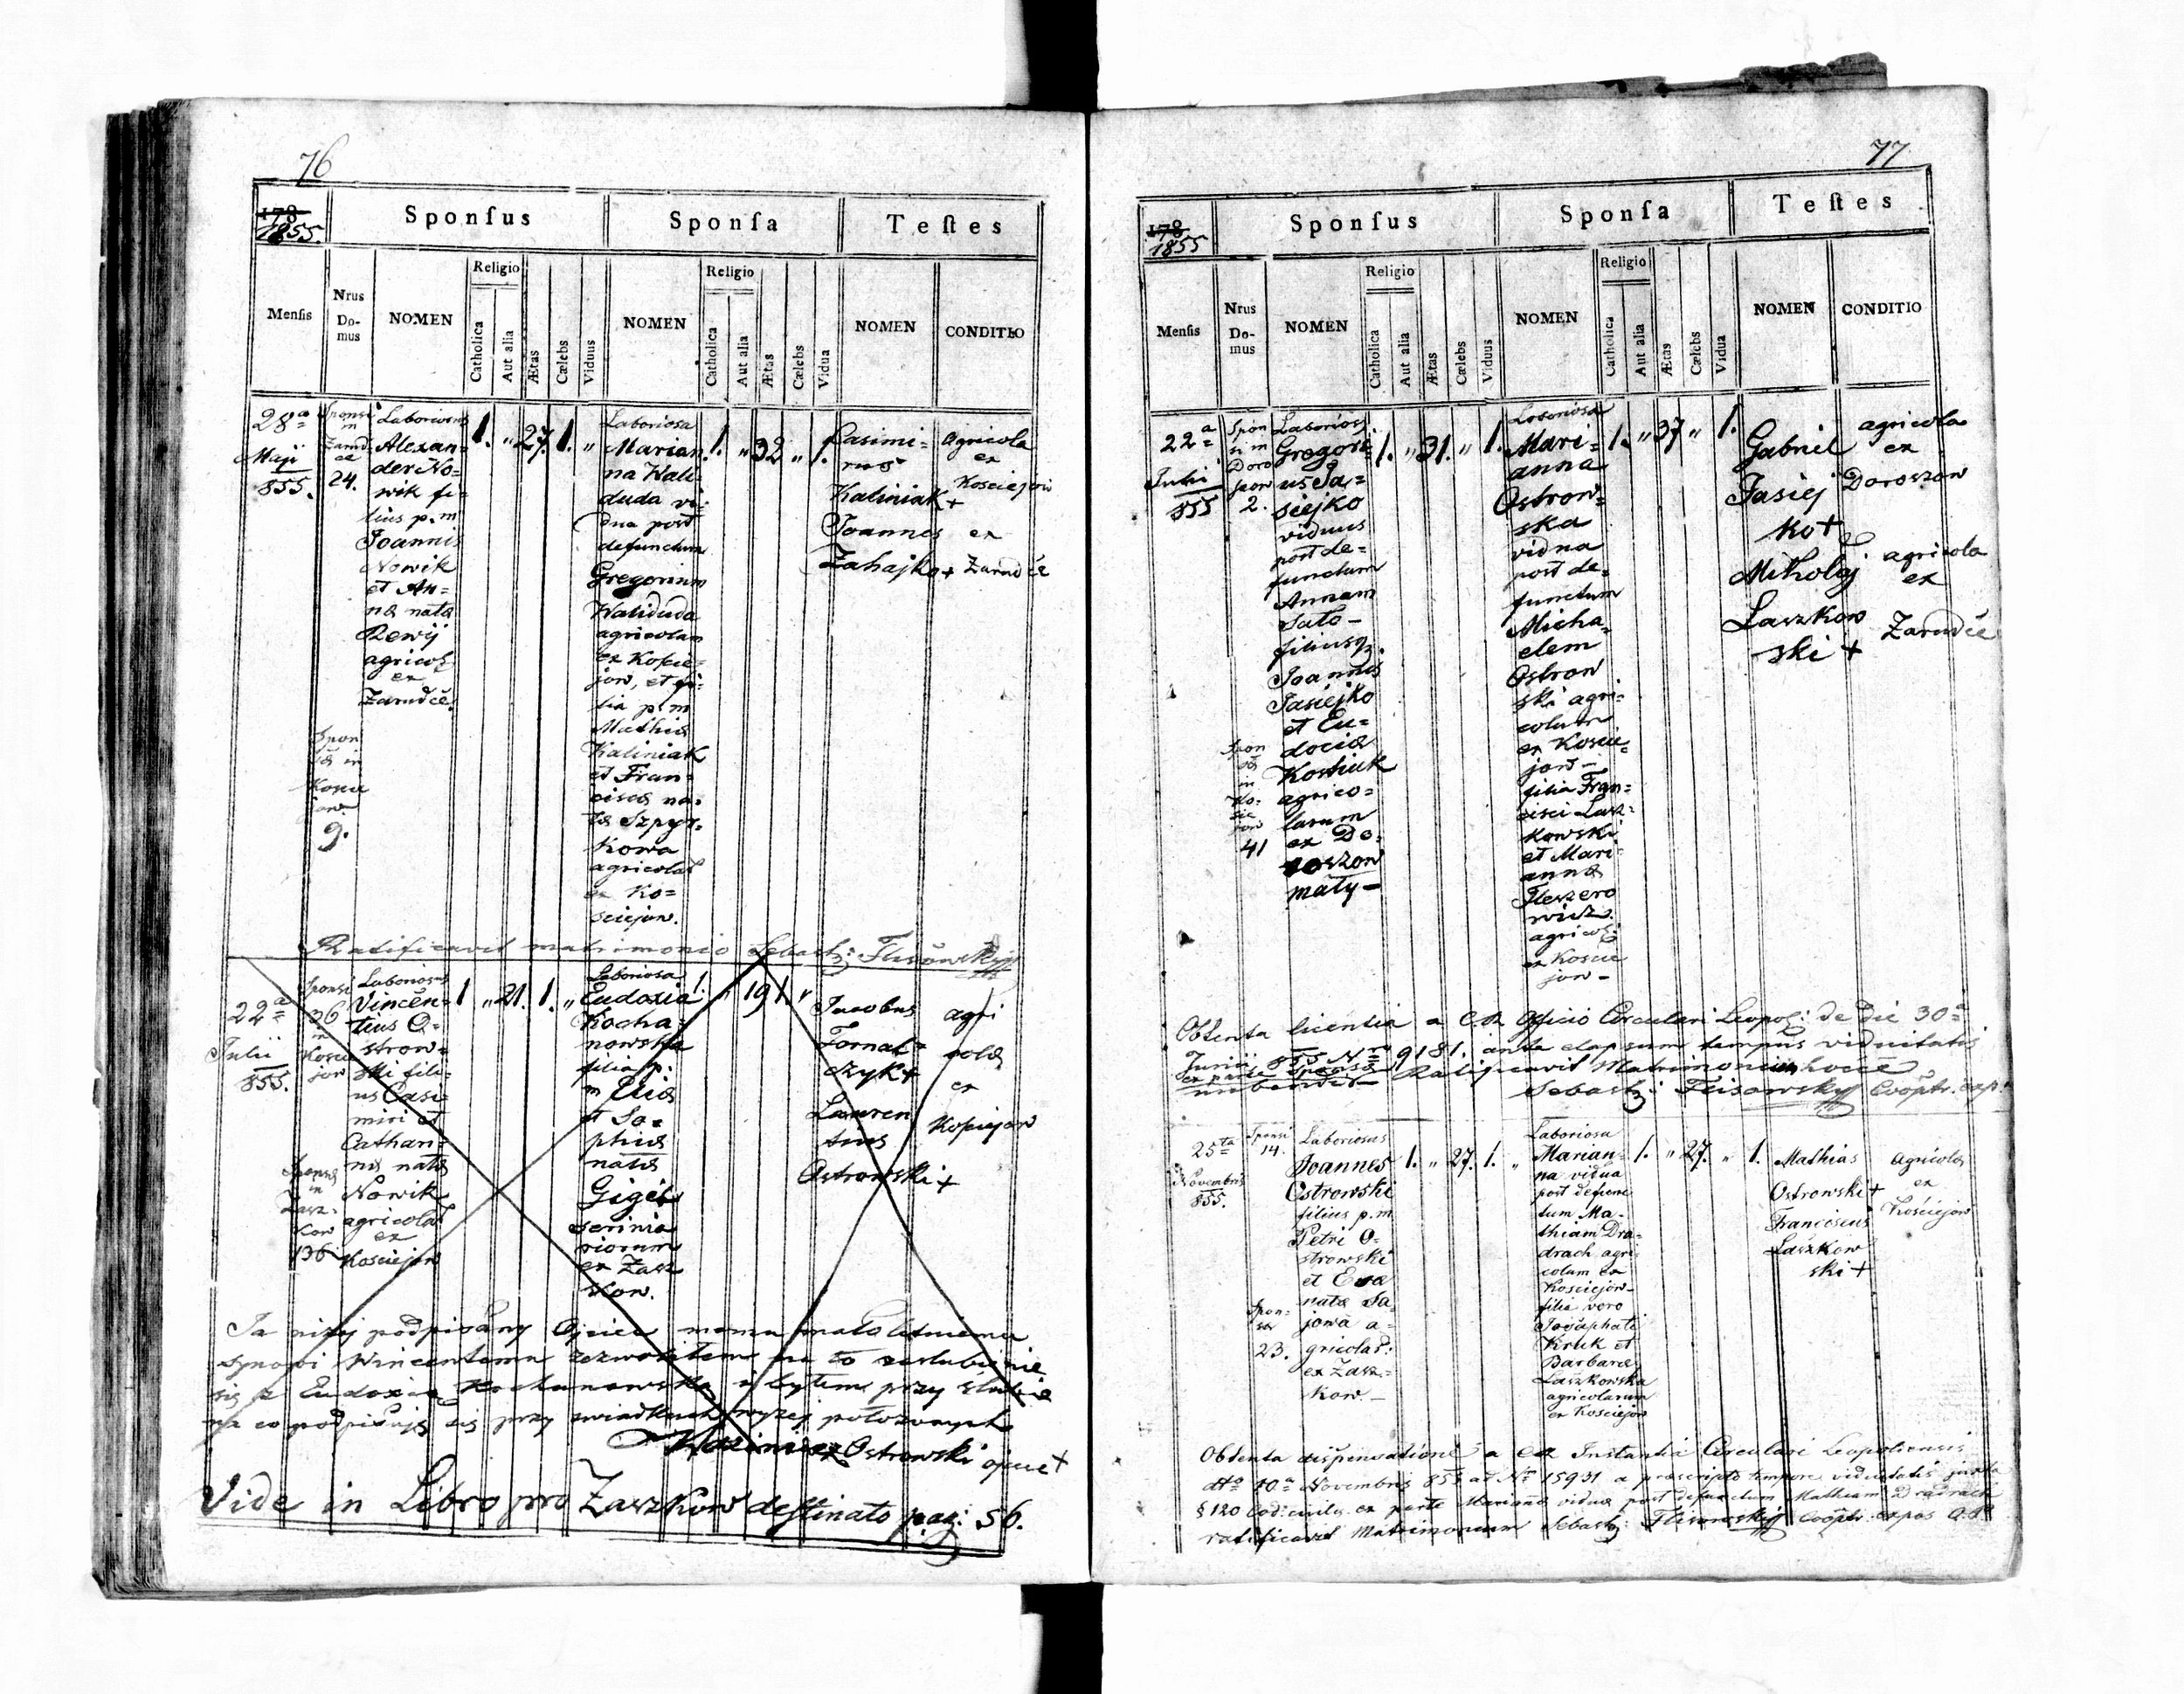 76
178
1855.
Sponſus
Sponſa
Teſtes
Menſis
Nrus
Do-
mus
NOMEN
Religio
Catholica
Aut alia
Ætas
Cælebs
Viduus
NOMEN
Religio
Catholica
Aut alia
Ætas
Cælebs
Vidua
NOMEN
CONDITIO
28a
Maji
855.
Sponsi
in
24.
Laboriosus
Alexan-
der No-
wik fi-
lius p.m
Joannis
Nowik
et An-
na nata
Rewij
agricol
ex
1. " 27. 1. "
Laboriosa
Marian
na Wali-
duda vi-
dua post
defunctum
Gregorium
Waliduda
agricolam
ex Koscie-
jow, et fi-
lia p.m
Mathiæ
Kaliniak
et Fran-
ciscæ na-
ta Szpyr-
kowa
agricolar
ex Ko-
sciejow.
1. " 32 " 1.
Casimi-
rus
Kaliniak +
Joannes
Zahajko +
Agricola
ex
Kosciejow
ex
Spon
sæ in
Koscie
jow
9.
Ratificavit matrimonio Sebast:
22a
Julii
855.
Sponsi
36
in
Koscie
jow
Laboriosus
Vincen-
tius O-
strow-
ski fili-
us Casi-
miri et
Cathari-
næ nata
Nowik
agricolar
ex
Kosciejow
1 " 21. 1. "
Laboriosa
Eudoxia
Kocha-
nowska
filia p:
m Eliæ
et So-
phiæ
nata
ex Zasz
kow.
1. " 19 1. "
Jacobus
Lauren
tius
Ostrowski +
agri
colæ
ex
Kosciejow
Sponsæ
in
Zasz-
kow
136
Ja niżej podpisany Ojciec memu małoletniemu
synowi Wincentemu zezwoliłem na to zaślubienie
się z Eudoxią Kochanowską i byłem przy ślubie
na co podpisuję się przy świadkach wyżej położonych
Kazimierz Ostrowski ojciec +
Vide in Libro pro Zaszkow destinato pag: 56.
77
178
1855
Sponſus
Sponſa
Teſtes
Menſis
Nrus
Do-
mus
NOMEN
Religio
Catholica
Aut alia
Ætas
Cælebs
Viduus
NOMEN
Religio
Catholica
Aut alia
Ætas
Cælebs
Vidua
NOMEN
CONDITIO
22a
Julii
855
Spon
si in
Doro
szow
2.
Laborios
Gregori-
us Ja-
siejko
viduus
post de-
functam
Annam
filius p.
Joannis
Jasiejko
et Eu-
dociæ
Kostiuk
agrico-
larum
ex Do-
roszow
mały -
1. " 31. " 1.
Laboriosa
Mari-
anna
Ostrow-
ska
vidua
post de-
functum
Micha-
elem
Ostrow
ski agri-
colam
ex Koscie-
jow -
filia Fran-
cisci Lasz-
kowski
et Mari-
annæ
agricol:
ex Koscie
jow -
1. " 37 " 1.
Gabriel
Jasiej
ko +
Mikołaj
Laszkow
ski +
agricola
ex
Doroszow
agricola
ex
Spon
sæ
in
Ko-
scie
jow
41
Obtenta licentia a C.R. Officio Circulari Leopol: de die 30a
Junii 855 Nro 9181. ante elapsum tempus viduitatis
ex parte Sponsæ Ratificavit Matrimonium hocce
Sebast: Cooptr. exp.
25ta
Novembris
855.
Sponsi
14.
Laboriosus
Joannes
Ostrowski
filius p.m
Petri O-
strowski
et Eva
nata Sa
jowa a-
gricolar:
ex Zasz-
kow -
1. " 27. 1. "
Laboriosa
Marian-
na vidua
post defunc
tum Ma-
thiam Dra-
drach agri-
colam ex
Kosciejow -
filia vero
Josaphati
Kruk et
Barbaræ
Laszkowska
agricolarum
ex Kosciejow
1. " 27. " 1.
Mathias
Ostrowski +
Franciscus
Laszkow
ski +
Agricolæ
ex
Kościejow
Spon-
sæ
23.
Obtenta dispensatione a C.R. Instantia Circulari Leopoliensis
dto 10a Novembris 855 ad Nr 15931 a præscripto tempore viduitatis juxta
§ 120 Cod: civilis ex parte Mariannæ viduæ post defunctum Mathiam Dradrach
ratificavit Matrimonium Sebast: Cooptr. expos